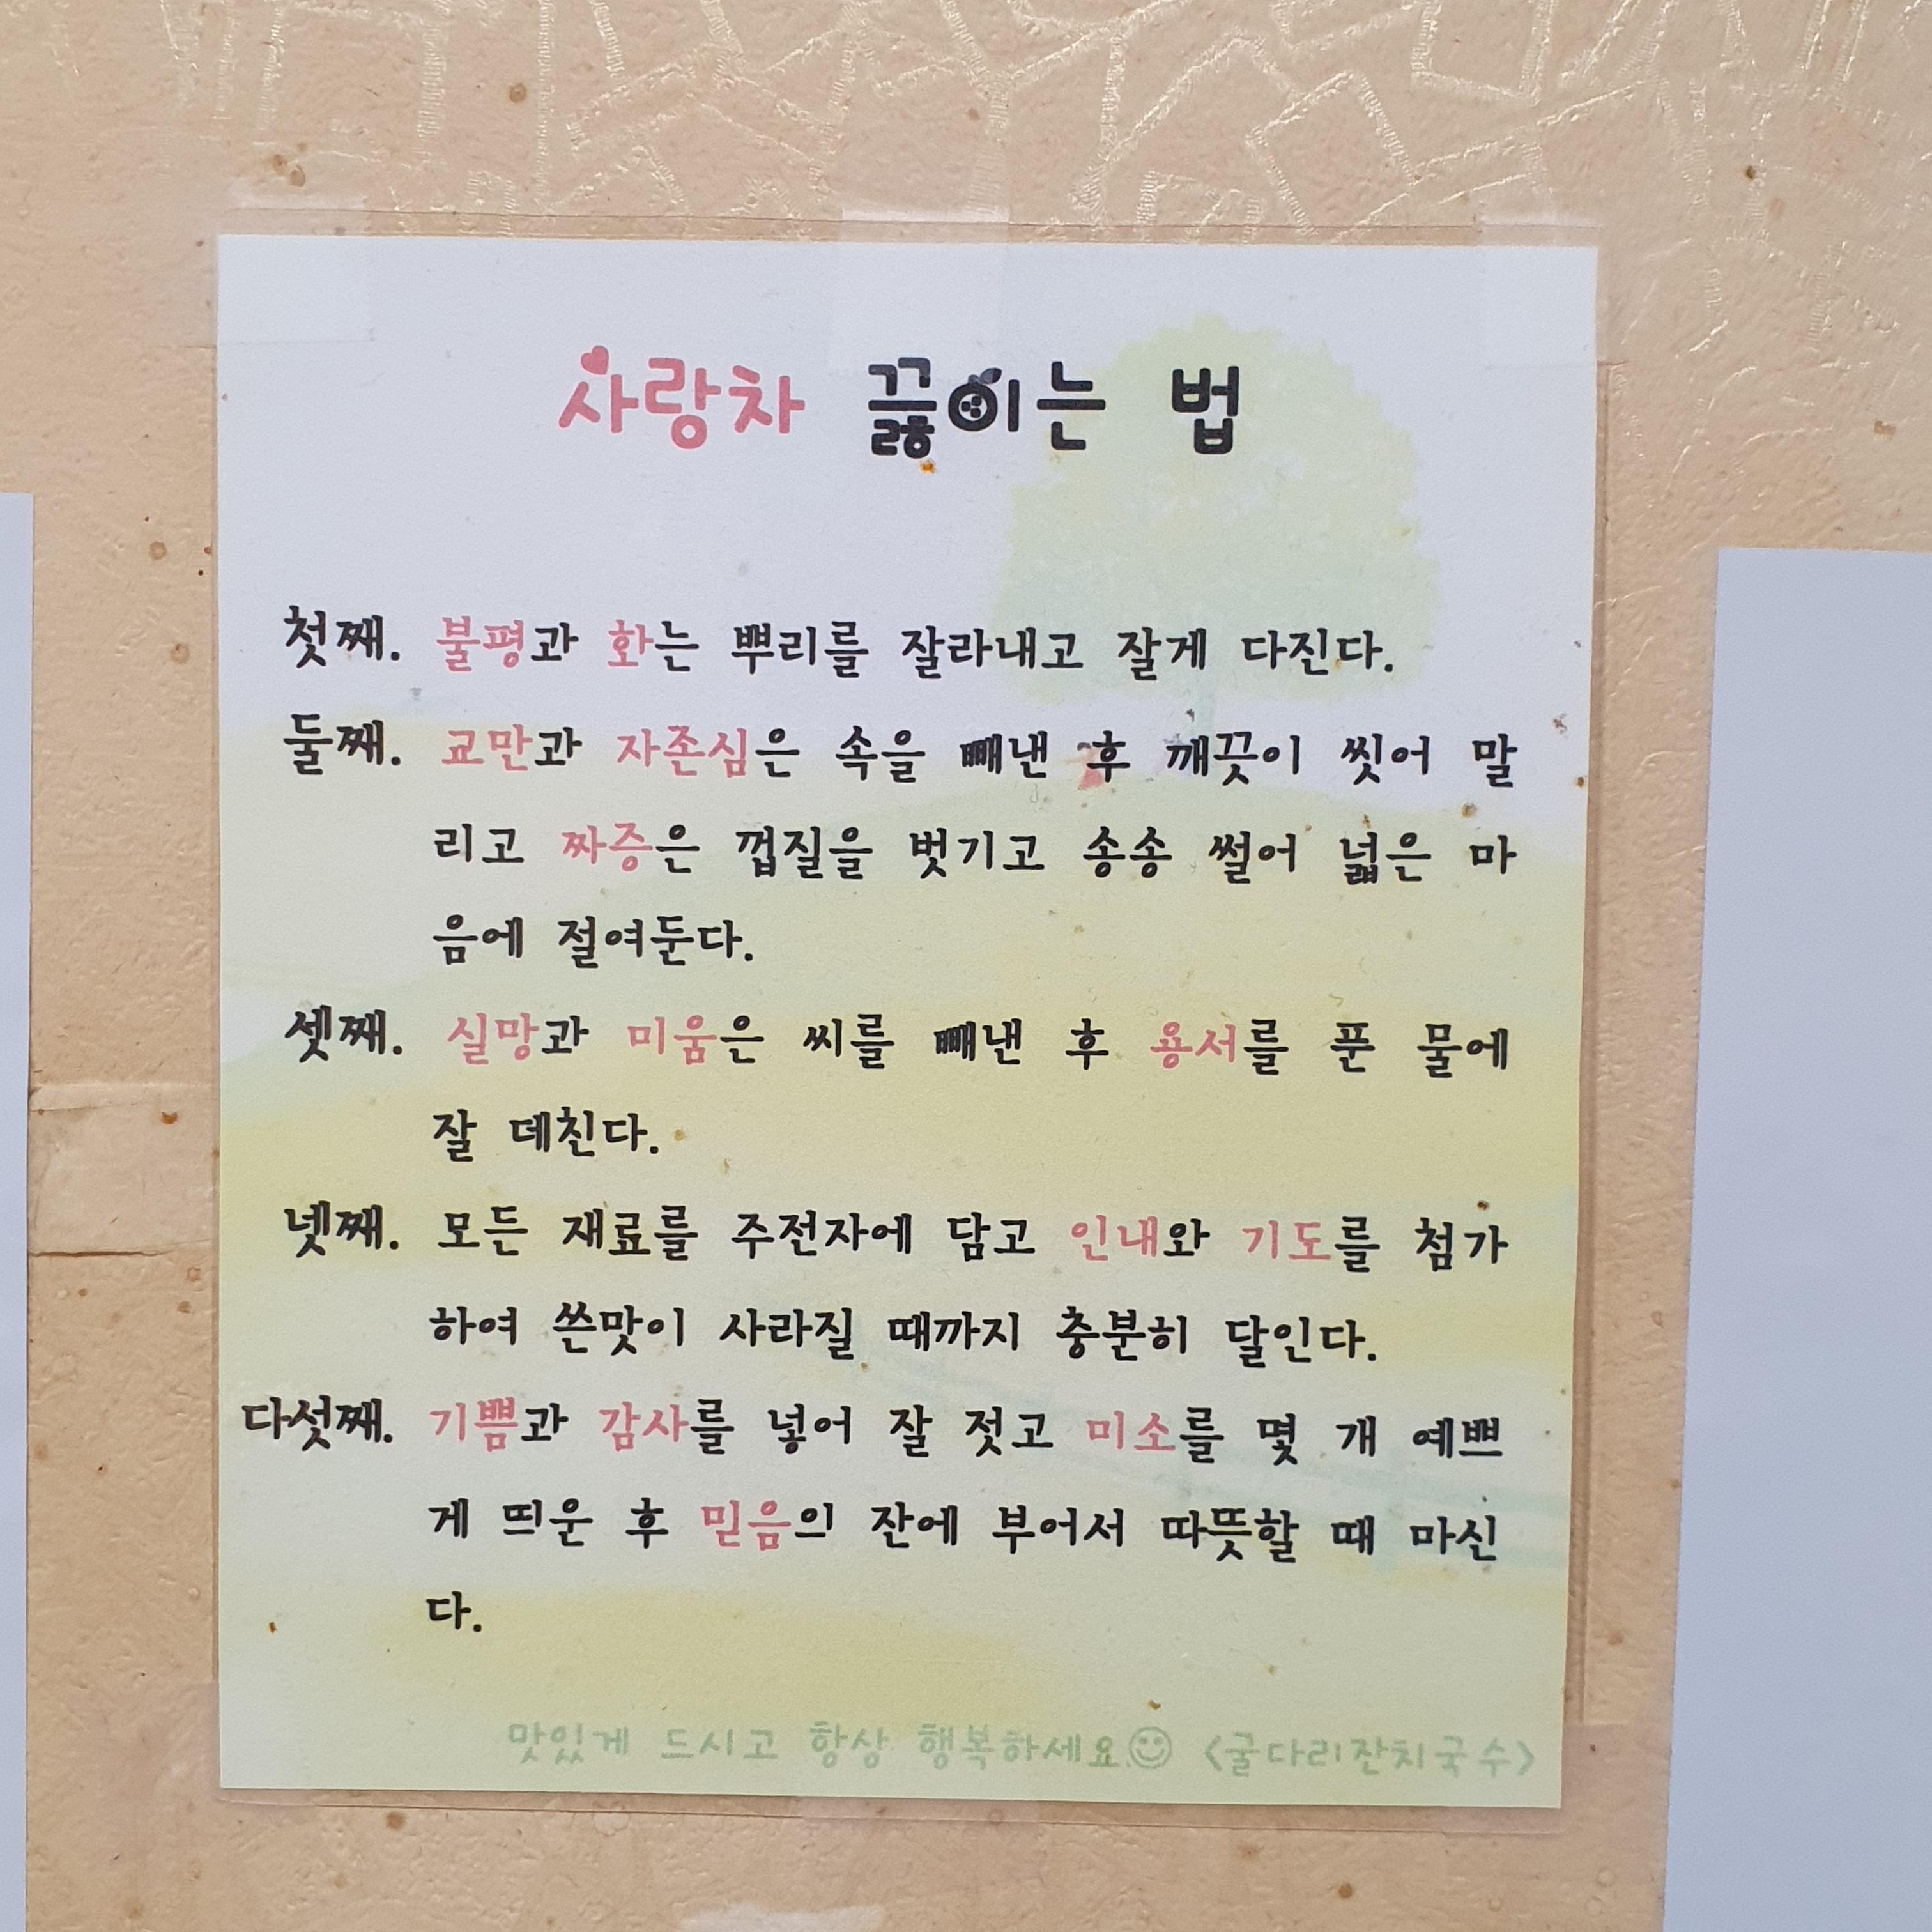 사랑차 끓이는 법
첫째. 불평과 화는 뿌리를 잘라내고 잘게 다진다.
둘째. 교만과 자존심은 속을 빼낸 후 깨끗이 씻어 말
리고 짜증은 껍질을 벗기고 송송 썰어 넓은 마
음에 절여둔다.
셋째. 실망과 미움은 씨를 빼낸 후 용서를 푼 물에
잘 데친다.
넷째. 모든 재료를 주전자에 담고 인내와 기도를 첨가
하여 쓴맛이 사라질 때까지 충분히 달인다.
다섯째. 기쁨과 감사를 넣어 잘 젓고 미소를 몇 개 예쁘
게 띄운 후 믿음의 잔에 부어서 따뜻할 때 마신
다.
맛있게 드시고 항상 행복하세요☺ <굴다리잔치국수>